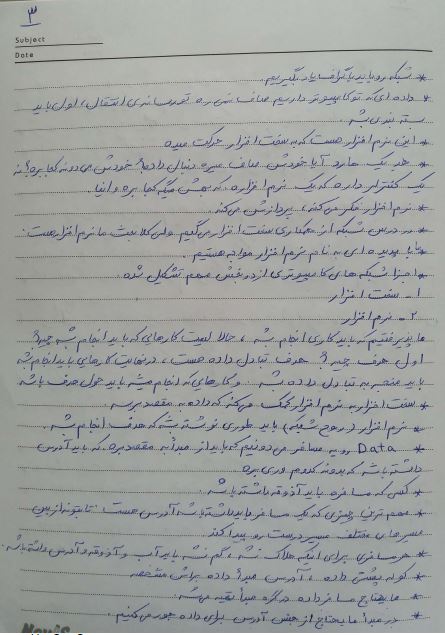 ۳
Subject
Date
* شبکه رو باید با گراف یاد بگیریم.
* داده ای که تو کامپیوتر داریم صاف نمی ره تو رسانه ی انتقال، اول باید
بسته بندی بشه.
* این نرم افزار هست که به سخت افزار حرکت میده
* هد یک هارد آیا خودش صاف میره دنبال داده؟ خودش می دونه کجا بره؟ نه
یک کنترلر داره که یک نرم افزاره، که بهش میگه کجا بره و اینا.
* نرم افزار فکر می کند، پردازش می کند.
* در درس شبکه از معماری سخت افزار می گیم ولی کلا بحث ما نرم افزار هست.
* با پدیده ای به نام نرم افزار مواجه هستیم.
* اجزا شبکه های کامپیوتری از دو بخش مهم تشکیل شده
۱. سخت افزار
۲. نرم افزار
ما پذیرفتیم که باید کاری انجام بشه، حالا لیست کارهایی که باید انجام بشه چیه؟
اول هدف چیه؟ هدف تبادل داده هست، در نهایت کارهایی باید انجام بشه
باید منجر به تبادل داده بشه. و کارهای که انجام میشه باید حول هدف باشه
* سخت افزار به نرم افزار کمک می کند که داده به مقصد برسه.
* نرم افزار (روح شبکه) باید طوری نوشته بشه که هدف انجام بشه.
* Data رو یه مسافر می دونیم که باید از مبدأ به مقصد بره، که باید آدرس
داشته باشه که بدونه کدوم وری بره
* کسی که مسافره باید آذوقه داشته باشه.
* مهم ترین چیزی که یک مسافر باید داشته باشه آدرس هست تا بتونه از بین
مسیرهای مختلف مسیر درست رو پیدا کند
* هر مسافری برای اینکه هلاک نشه، گم نشه باید آب و آذوقه و آدرس داشته باشه.
* کوله پشتی داده، آدرس مبدأ داده براش مشخصه
* مایحتاج مسافر داده در گره مبدأ تهیه می شه.
* در مبدأ مایحتاج از جنس آدرس برای داده جور می کنیم.